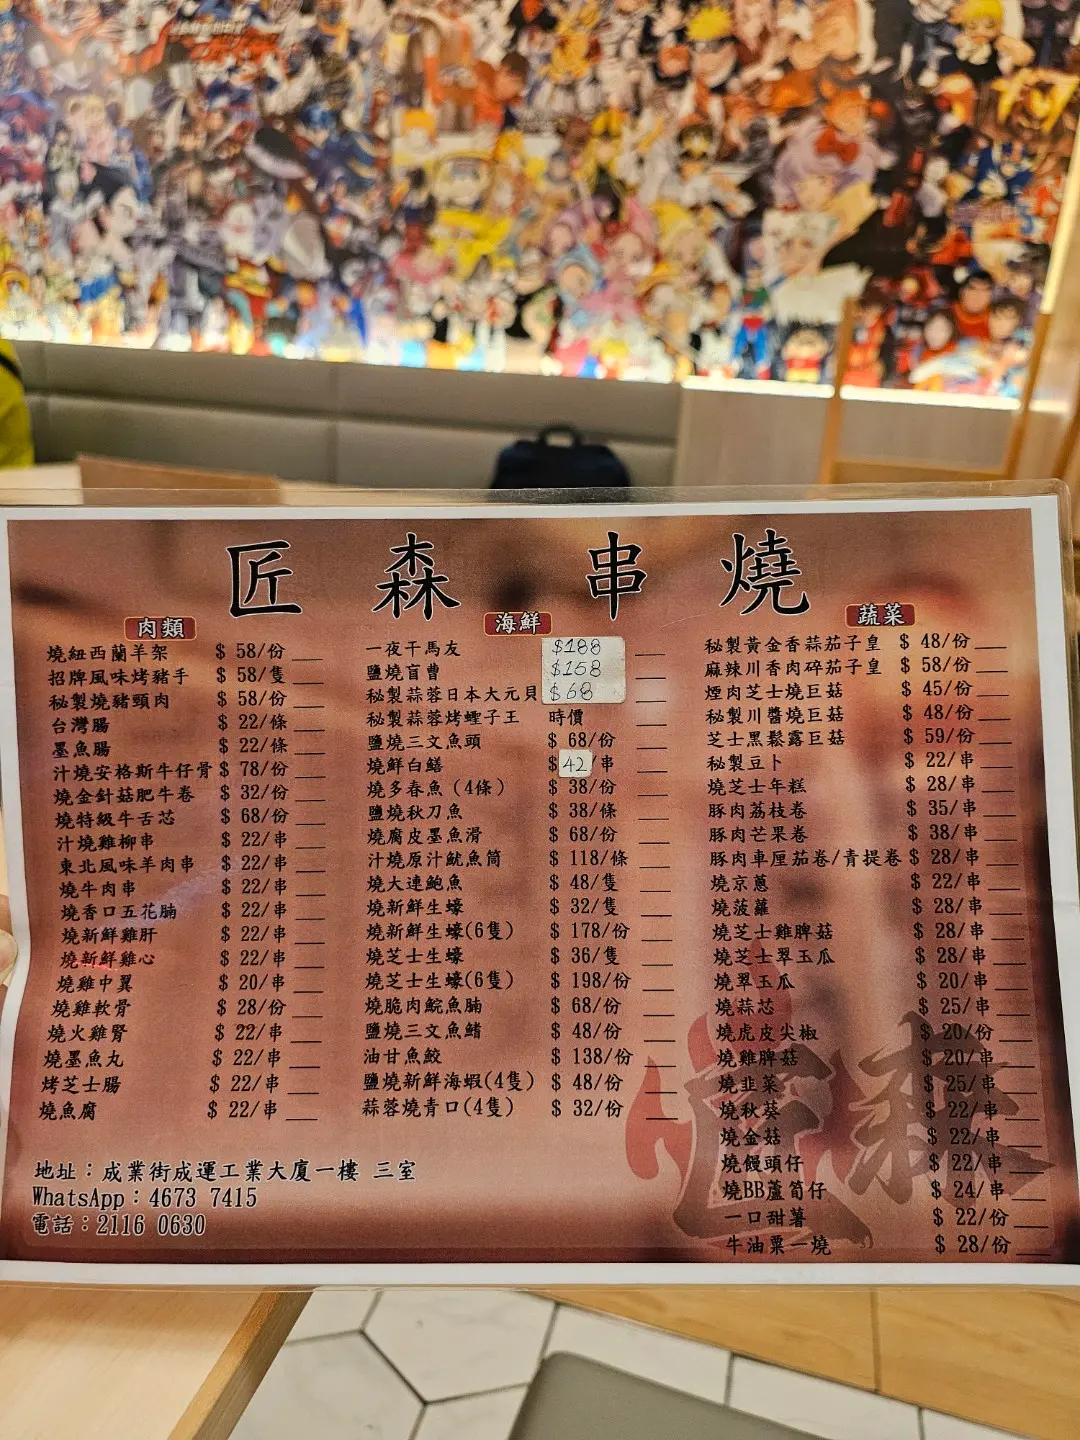 匠森串燒
肉類
燒紐西蘭羊架 $ 58/份
招牌風味烤豬手 $ 58/隻
秘製燒豬頸肉 $ 58/份
台灣腸 $ 22/條
墨魚腸 $ 22/條
汁燒安格斯牛仔骨 $ 78/份
燒金針菇肥牛卷 $ 32/份
燒特級牛舌芯 $ 68/份
汁燒雞柳串 $ 22/串
東北風味羊肉串 $ 22/串
燒牛肉串 $ 22/串
燒香口五花腩 $ 22/串
燒新鮮雞肝 $ 22/串
燒新鮮雞心 $ 22/串
燒雞中翼 $ 20/串
燒雞軟骨 $ 28/份
燒火雞腎 $ 22/串
燒墨魚丸 $ 22/串
烤芝士腸 $ 22/串
燒魚腐 $ 22/串
海鮮
一夜干馬友 $188
鹽燒盲曹 $158
秘製蒜蓉日本大元貝 $68
秘製蒜蓉烤蟶子王 時價
鹽燒三文魚頭 $ 68/份
燒鮮白鱔 $ 42/串
燒多春魚(4條) $ 38/份
鹽燒秋刀魚 $ 38/條
燒腐皮墨魚滑 $ 68/份
汁燒原汁魷魚筒 $ 118/條
燒大連鮑魚 $ 48/隻
燒新鮮生蠔 $ 32/隻
燒新鮮生蠔(6隻) $ 178/份
燒芝士生蠔 $ 36/隻
燒芝士生蠔(6隻) $ 198/份
燒脆肉鯇魚腩 $ 68/份
鹽燒三文魚鰭 $ 48/份
油甘魚鮫 $ 138/份
鹽燒新鮮海蝦(4隻) $ 48/份
蒜蓉燒青口(4隻) $ 32/份
蔬菜
秘製黃金香蒜茄子皇 $ 48/份
麻辣川香肉碎茄子皇 $ 58/份
煙肉芝士燒巨菇 $ 45/份
秘製川醬燒巨菇 $ 48/份
芝士黑鬆露巨菇 $ 59/份
秘製豆卜 $ 22/串
燒芝士年糕 $ 28/串
豚肉荔枝卷 $ 35/串
豚肉芒果卷 $ 38/串
豚肉車厘茄卷/青提卷 $ 28/串
燒京蔥 $ 22/串
燒菠蘿 $ 28/串
燒芝士雞脾菇 $ 28/串
燒芝士翠玉瓜 $ 28/串
燒翠玉瓜 $ 20/串
燒蒜芯 $ 25/串
燒虎皮尖椒 $ 20/份
燒雞脾菇 $ 20/串
燒韭菜 $ 25/串
燒秋葵 $ 22/串
燒金菇 $ 22/串
燒饅頭仔 $ 22/串
燒BB蘆筍仔 $ 24/串
一口甜薯 $ 22/份
牛油粟一燒 $ 28/份
地址：成業街成運工業大廈一樓 三室
WhatsApp：4673 7415
電話：2116 0630
匠森